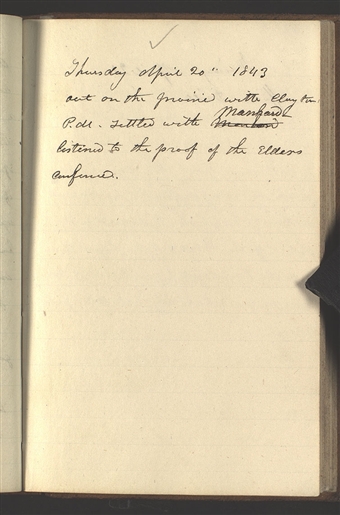 Thursday April 20" 1843
out on the prairie with Clayton.
P.M. settled with Manhard
listened to the proof of the Elders
conference.